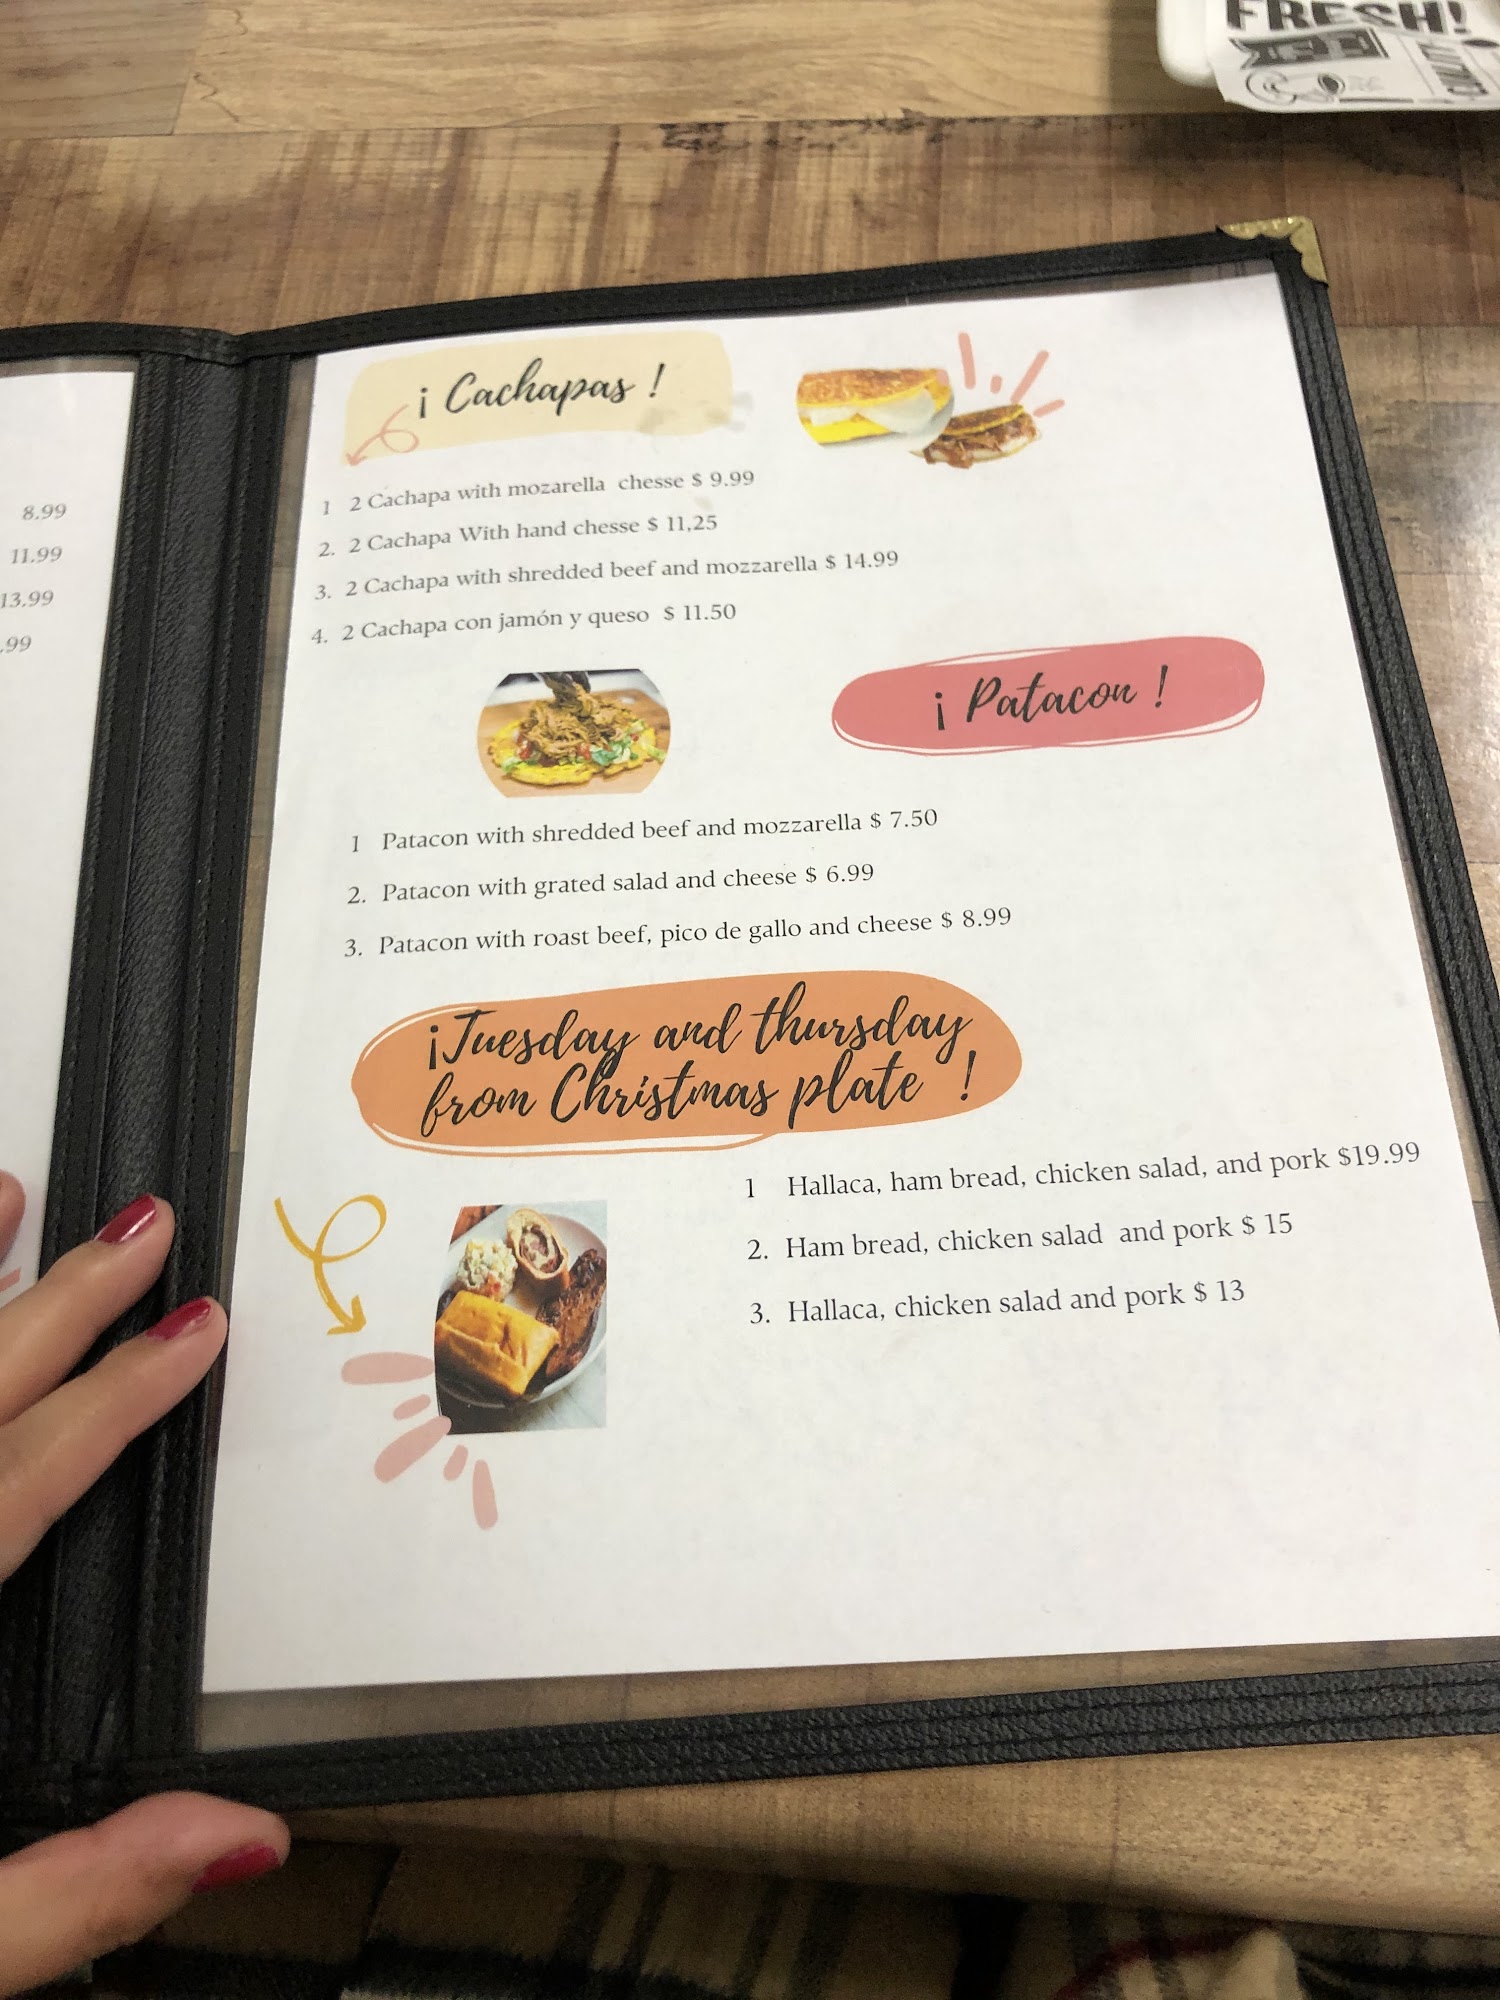 FRESH!
8.99
11.99
13.99
.99
¡ Cachapas !
1 2 Cachapa with mozarella chesse $ 9.99
2. 2 Cachapa With hand chesse $ 11,25
3. 2 Cachapa with shredded beef and mozzarella $ 14.99
4. 2 Cachapa con jamón y queso $ 11.50
¡ Patacon !
1 Patacon with shredded beef and mozzarella $ 7.50
2. Patacon with grated salad and cheese $ 6.99
3. Patacon with roast beef, pico de gallo and cheese $ 8.99
¡Tuesday and thursday
from Christmas plate !
1 Hallaca, ham bread, chicken salad, and pork $19.99
2. Ham bread, chicken salad and pork $ 15
3. Hallaca, chicken salad and pork $ 13